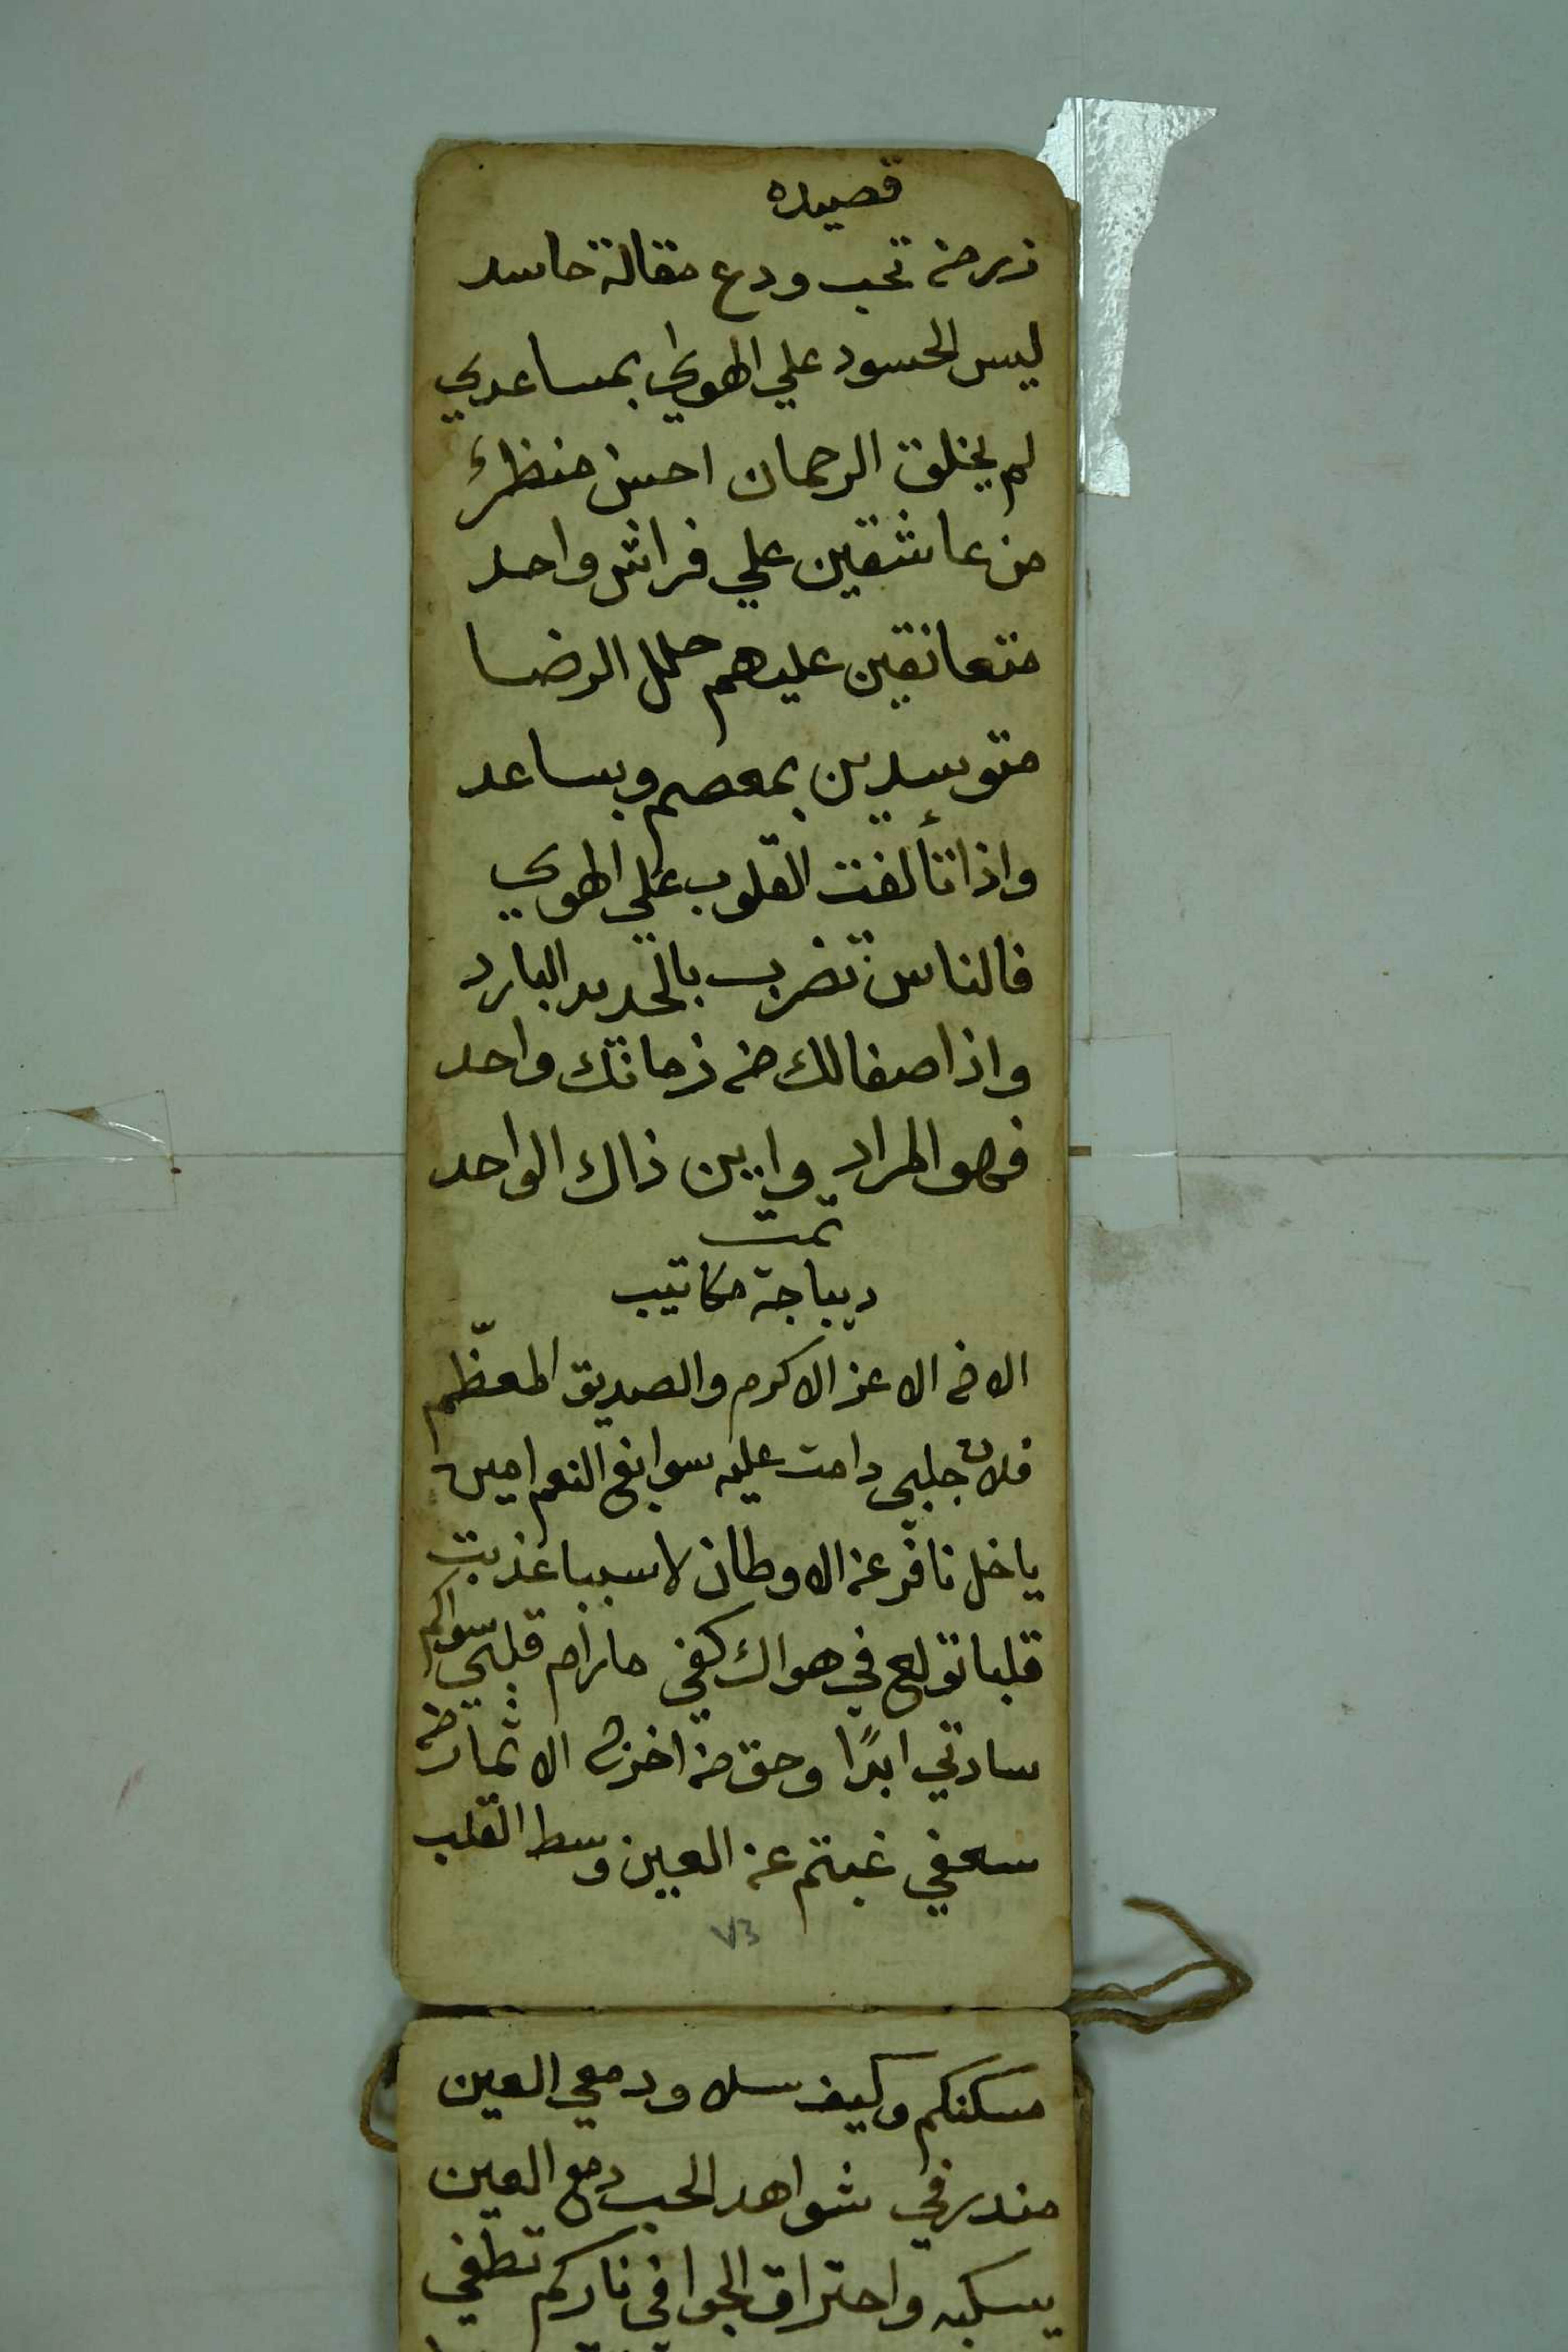 قصيده
زر من تحب ودع مقالة حاسد
ليس الحسود علي الهوي بمساعدي
لم يخلق الرحمان احسن منظرً
من عاشقين علي فراش واحد
متعانقين عليهم حلل الرضا
متوسدين بمعصم وبساعد
واذا تألفت القلوب علي الهوي
فالناس تضرب بالحديد البارد
واذا صفالك من زمانك واحد
فهو المراد واين ذاك الواحد
تمت
ديباجة مكاتيب
الاخ الاعز الاكرم والصديق المعظّم
فلان جلبي دامت عليه سوابغ النعم امين
ياخل نافر عن الاوطان لاسببا عذبت
قلبا تولع في هواك كفي مارام قلبي سواكم
سادتي ابدًا وحق من اخزن الاثمار من
سعفي غبتم عن العين وسط القلب
٧٣
مسكنكم وكيف سلا ودمعي العين
منذرفي شواهد الحب دمع العين
يسكبه واحتراق الجوا في ناركم تطفي